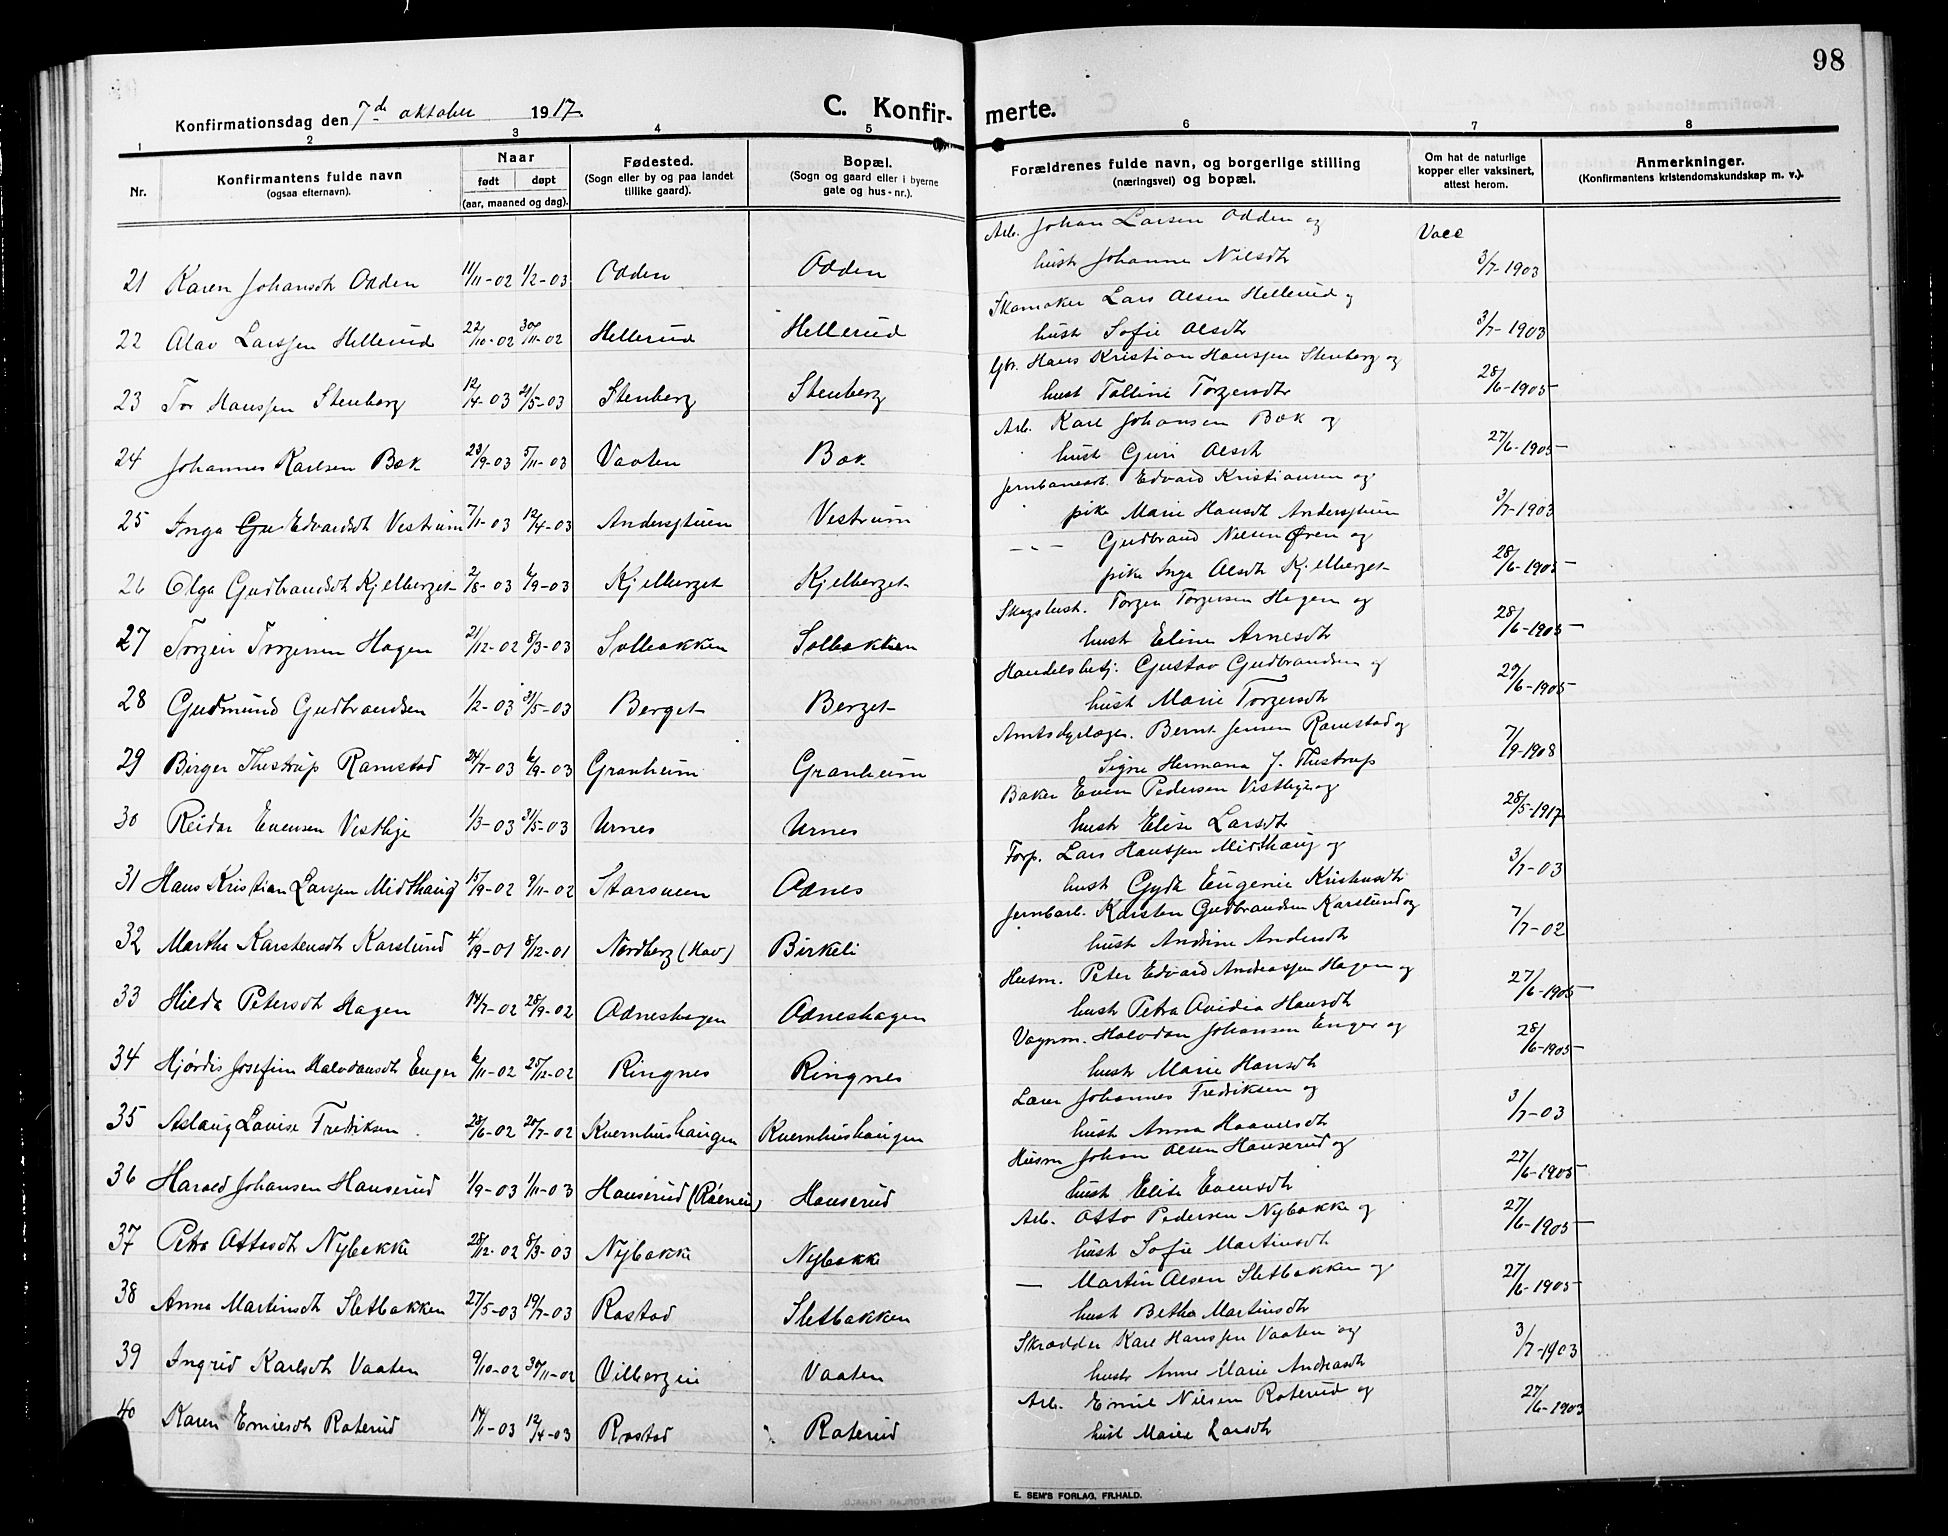 98
Konfirmationsdag den 7de oktober 1917.
C. Konfir- merte.
1 2 3 4 5 6 7 8
Nr.
Konfirmantens fulde navn
(ogsaa efternavn).
Naar
født døpt
(aar, maaned og dag).
Fødested.
(Sogn eller by og paa landet
tillike gaard).
Bopæl.
(Sogn og gaard eller i byerne
gate og hus-nr.).
Forældrenes fulde navn, og borgerlige stilling
(næringsvei) og bopæl.
Om hat de naturlige
kopper eller vaksinert,
attest herom.
Anmerkninger.
(Konfirmantens kristendomskundskap m. v.).
Arb. Johan Larsen Odden og Vacc
21 Karen Johansdt Odden 11/11-02 1/2-03 Odden Odden hust Johanne Nilsdt 3/7-1903
Skomaker Lars Olsen Hellerud og
22 Olav Larssen Hellerud 22/10-02 30/11-02 Hellerud Hellerud hust Sofie Olsdt 3/7-1903
Gbr. Hans Kristian Hanssen Stenberg og
23 Tor Hanssen Stenberg 12/4-03 21/5-03 Stenberg Stenberg hust Tolline Torgersdt 28/6-1905
Arb. Karl Johansen Bæk og
24 Johannes Karlsen Bæk 23/9-03 5/11-03 Vaaten Bæk hust Guri Olsdt 27/6-1905
Jernbanearb. Edvard Kristiansen og
25 Inga Gu Edvardsdt Vestrum 7/1-03 12/4-03 Anderstuen Vestrum pike Marie Hansdt Anderstuen 3/7-1903
-"- Gudbrand Nilsen Øren og
26 Olga Gudbrandsdt Kjelberget 2/8-03 6/9-03 Kjelberget Kjelberget pike Inga Olsdt Kjelberget 28/6-1905
Skogsbest. Torger Torgersen Hagen og
27 Torgeir Torgersen Hagen 21/12-02 8/3-03 Solbakken Solbakken hust Eline Arnesdt 28/6-1905
Handelsbetj. Gustav Gudbrandsen og
28 Gudmund Gudbrandsen 1/2-03 31/5-03 Berget Berget hust Marie Torgersdt 29/6-1905
Amtsdyrlæge. Bernt Jensen Ramstad og
29 Birger Thestrup Ramstad 24/7-03 6/9-03 Granheim Granheim Signe Hermana J. Thestrup 7/9-1908
Baker Even Pedersen Vestlye og
30 Reidar Evensen Vestlye 1/3-03 31/5-03 Urnes Urnes hust Elise Larsdt 28/5-1917
Forp. Lars Hanssen Midthaug og
31 Hans Kristian Larssen Midthaug 15/9-02 9/11-02 Starsveen Odnes hust Gyda Eugenie Kristiansdt 3/7-03
Jernbarb. Karsten Gudbrandsen Karslund og
32 Martha Karstensdt Karslund 4/9-01 8/12-01 Nordberg (Hov) Birkeli hust Andrine Andersdt 7/7-02
Husm. Peter Edvard Andreassen Hagen og
33 Hilda Petersdt Hagen 14/7-02 28/9-02 Odneshagen Odneshagen hust Petra Ovidia Hansdt 27/6-1905
Vognm. Halvdan Johansen Enger og
34 Hjørdis Josefine Halvdansdt Enger 6/11-02 25/12-02 Ringnes Ringnes hust Marie Hansdt 28/6-1905
Lærer Johannes Fredriksen og
35 Aslaug Lovise Fredriksen 28/6-02 20/7-02 Kvernhushaugen Kvernhushaugen hust Anna Haavelsdt 3/7-03
Husm Johan Olsen Hauserud og
36 Harald Johansen Hauserud 1/9-03 1/11-03 Hauserud Hauserud hust Elise Evensdt 27/6-1905
Arb. Otto Pedersen Nybakke og
37 Petra Ottosdt Nybakke 28/12-02 8/3-03 Nybakke Nybakke hust Sofie Martinsdt 27/6-1905
— Martin Olsen Sletbakken og
38 Anna Martinsdt Sletbakken 27/5-03 19/7-03 Rostad Sletbakken hust Betha Martinsdt 27/6-1905
Skrædder Karl Hanssen Vaaten og
39 Ingrid Karlsdt Vaaten 9/10-02 30/11-02 Vilbergeie Vaaten hust Anne Marie Andreasdt 3/7-1903
Arb. Emil Nilsen Roterud og
40 Karen Emilsdt Roterud 14/1-03 12/4-03 Rostad Roterud hust Marie Larsdt 27/6-1903
E. SEM'S FORLAG, FR.HALD.